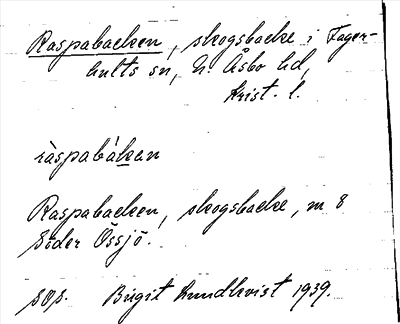 Raspabacken, skogsbacke i Fager-
hults sn, N. Åsbo hd,
Krist. l.
ràspabàkan
Raspabacken, skogsbacke, m 8
Söder Össjö.
sos. Birgit Kundkvist 1939.